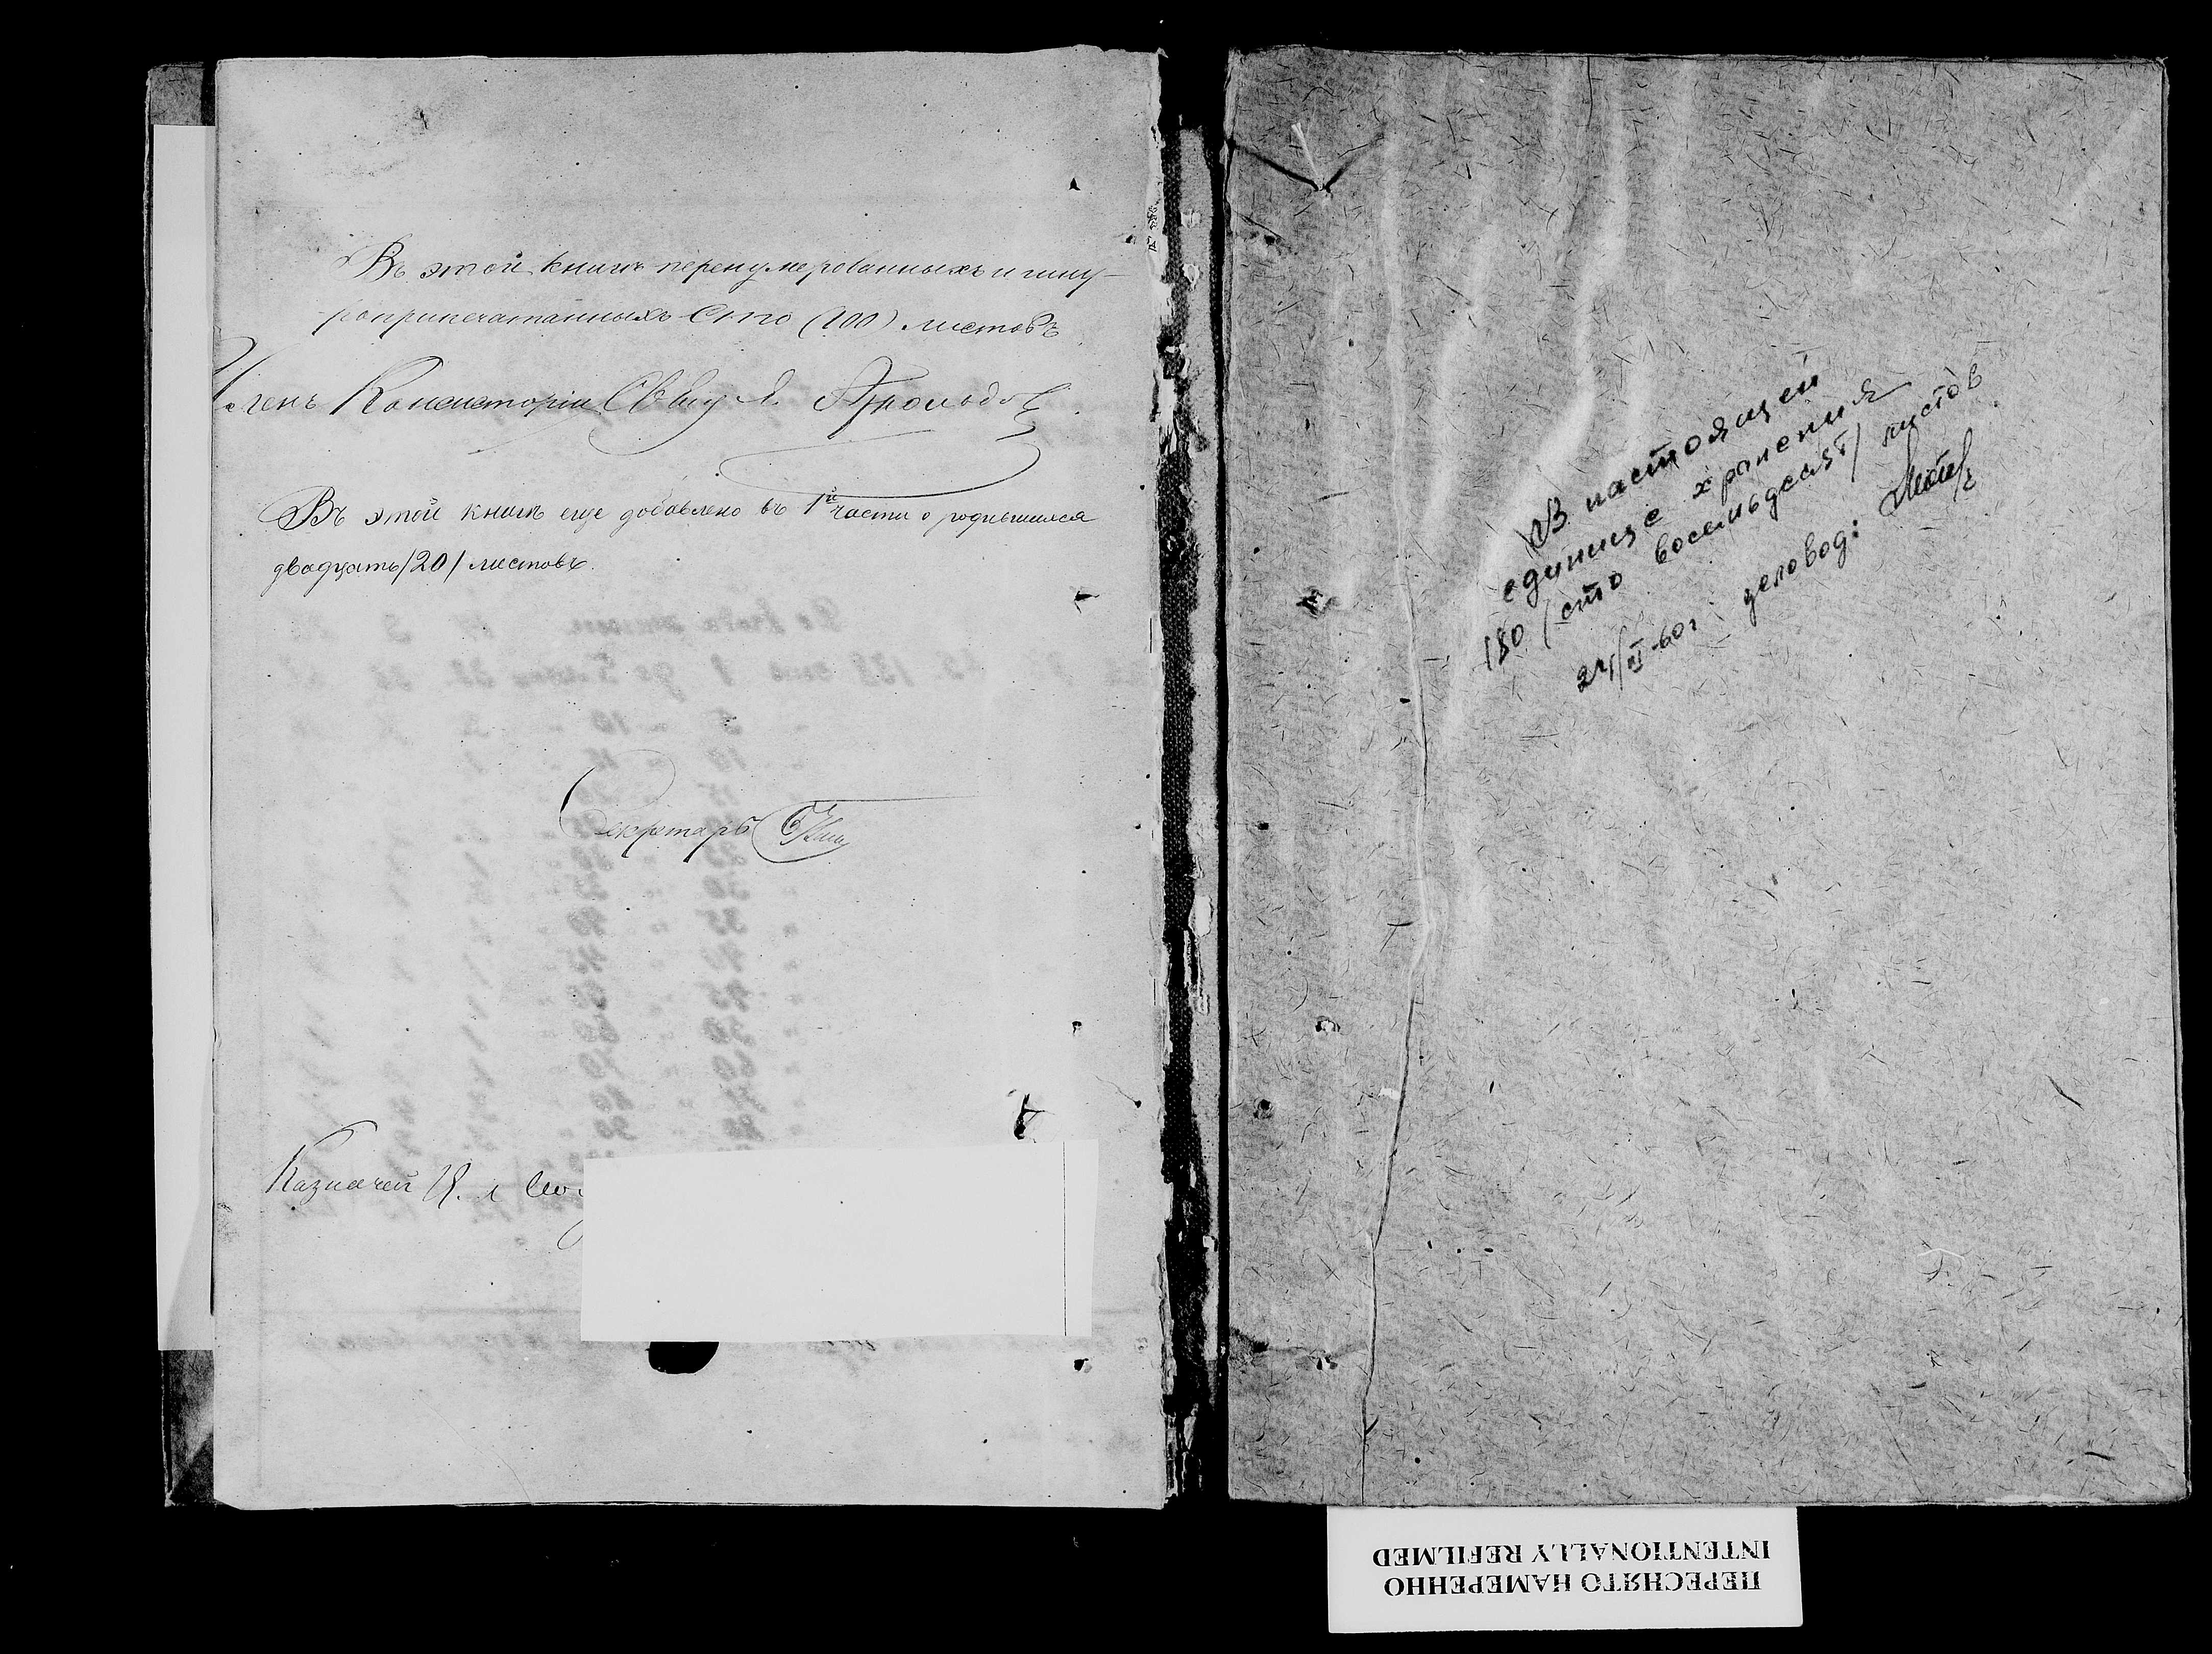 Въ этой книгѣ перенумерованныхъ и шну-
роприпечатанныхъ Сто (100) листовъ
Членъ Консисторіи Свящ.
Въ этой книгѣ еще добавлено въ 1й части о родившихся
двадцать /20/ листовъ.
Секретарь
Казначей
В настоящей
единице хранения
180 /сто восемьдесят/ листов
24/VI-60г деловод:
ПЕРЕСНЯТО НАМЕРЕННО
INTENTIONALLY REFILMED